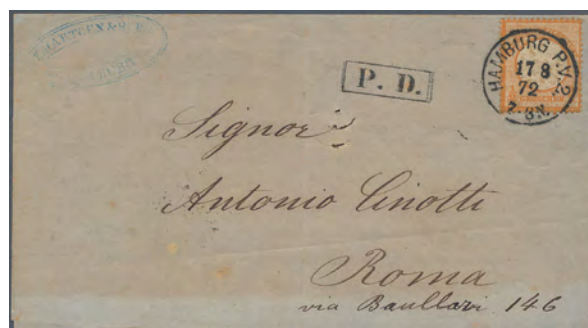 HAMBURG P.V.2.
17 8
72
7-8N.
P. D.
Signor
Antonio Cinotti
Roma
via Baullari 146